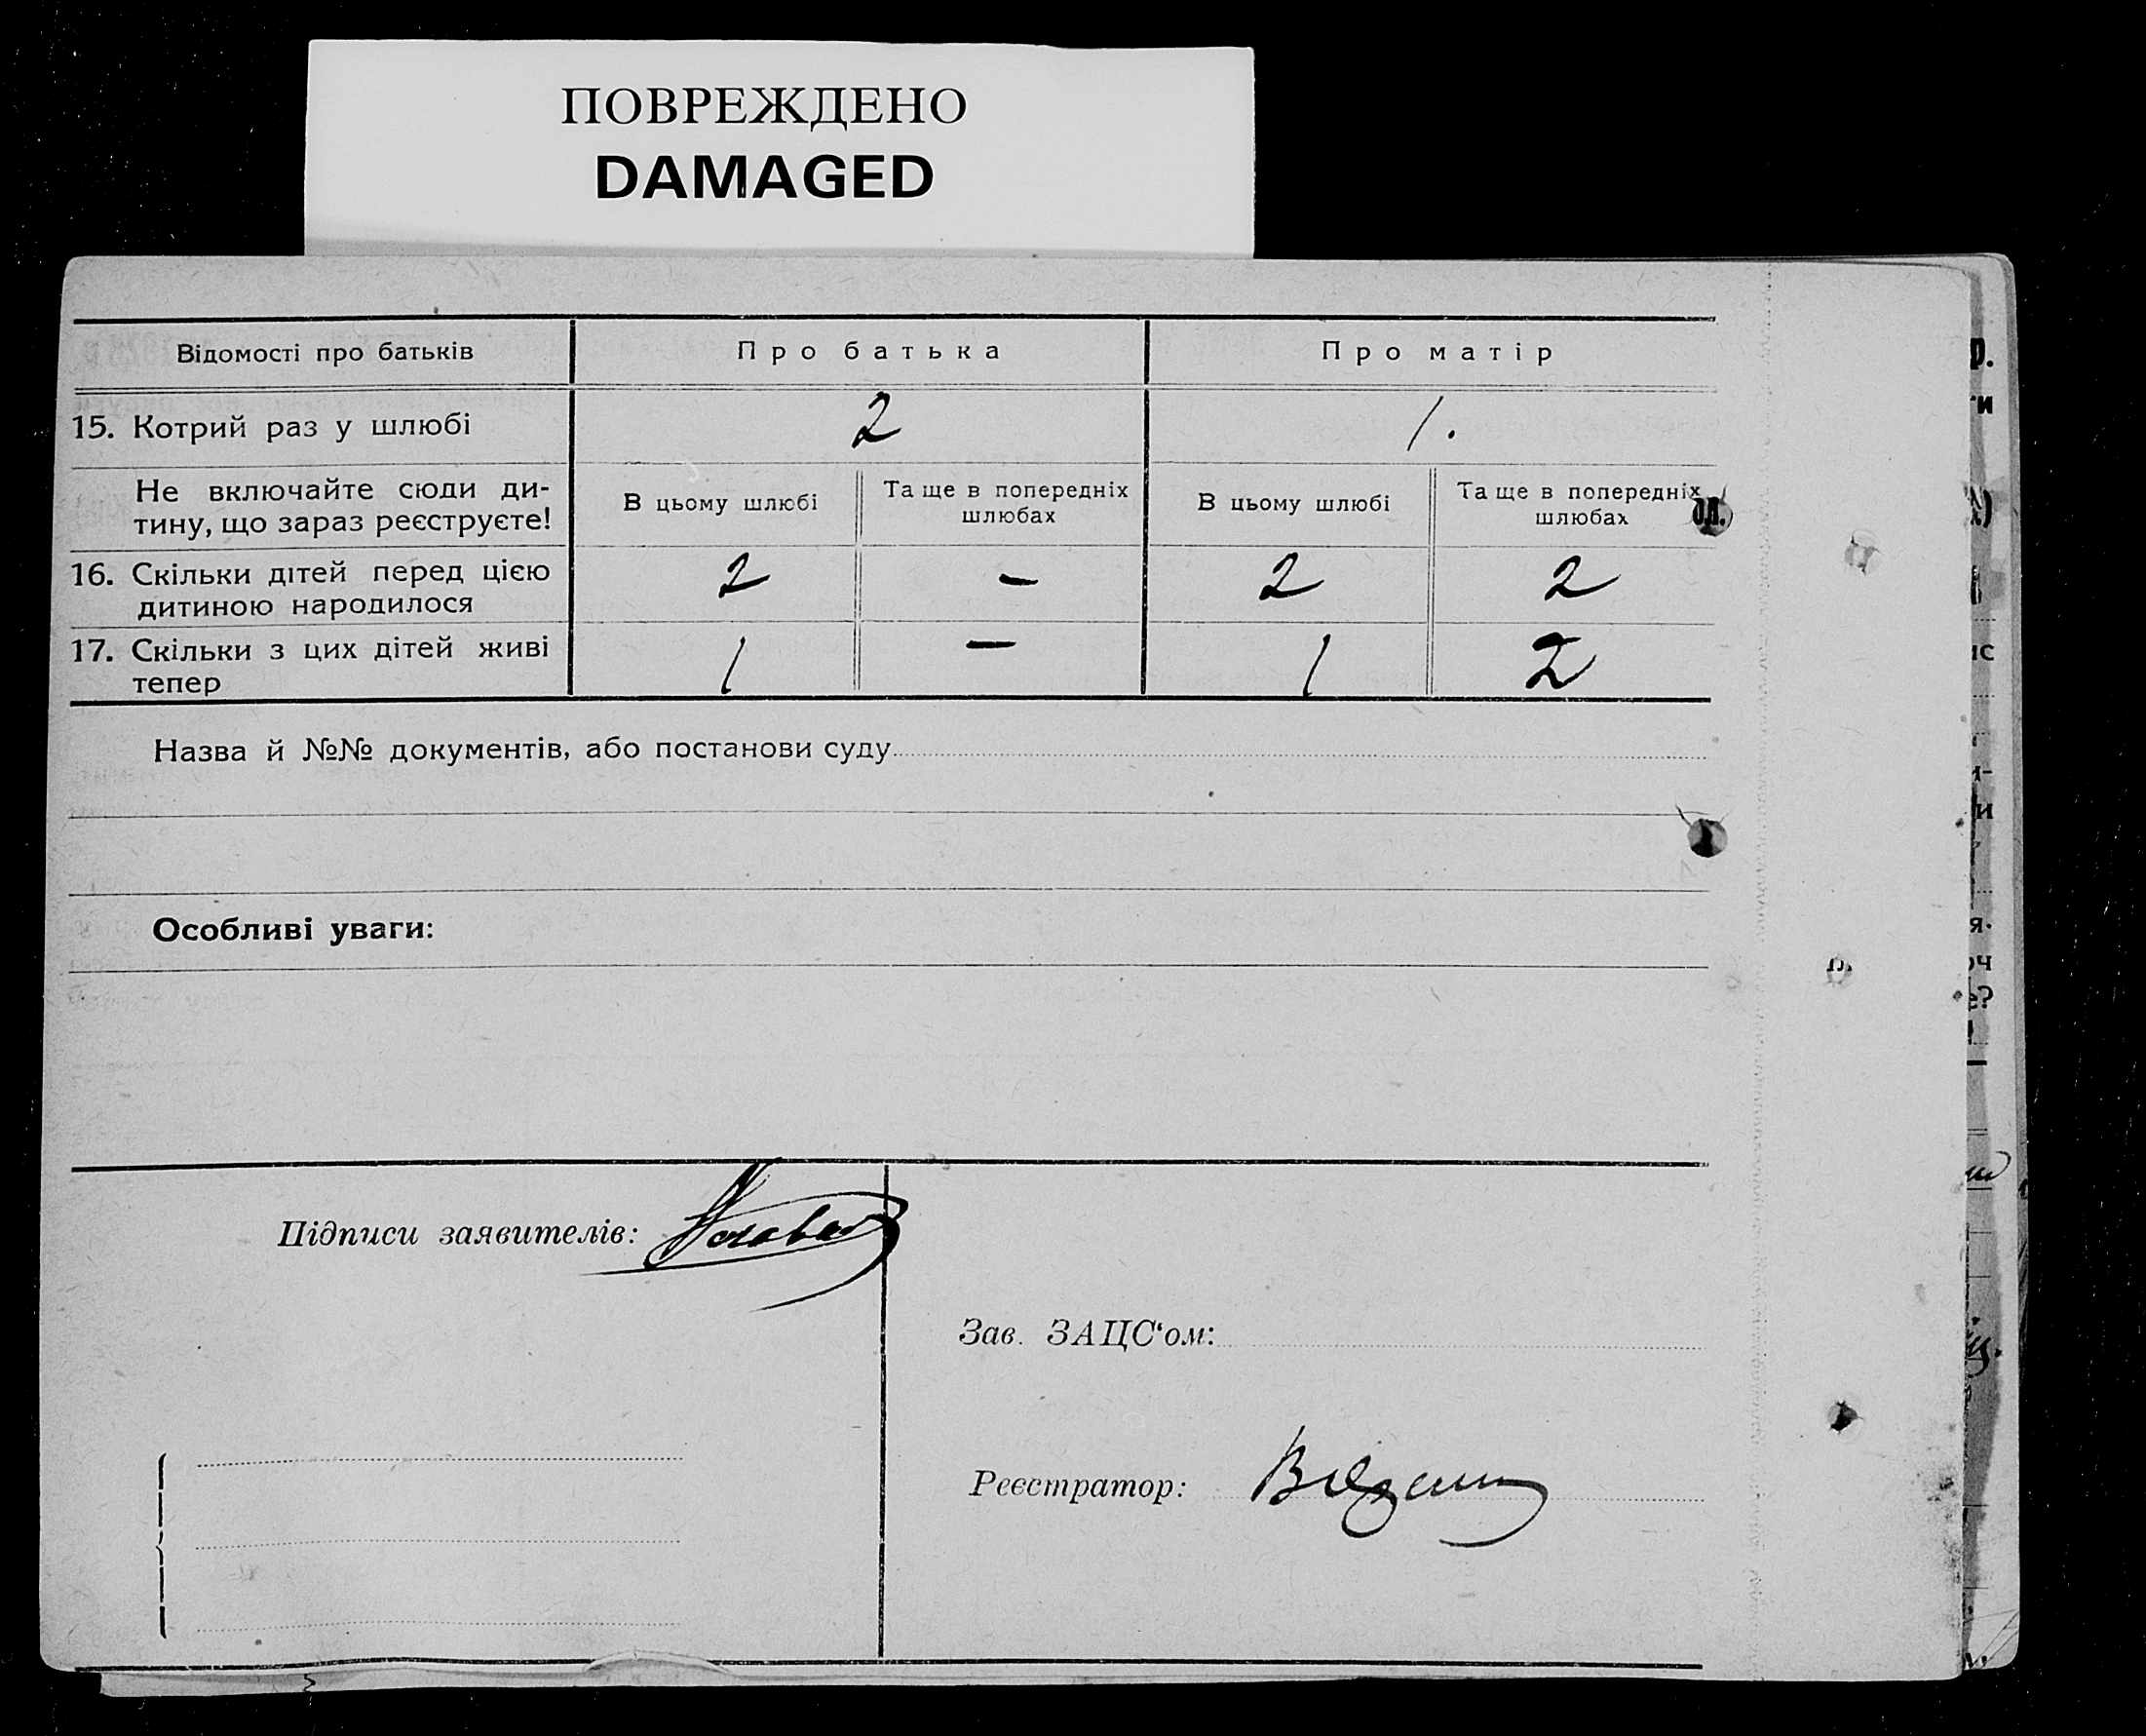 ПОВРЕЖДЕНО
DAMAGED
Відомості про батьків
Про батька
Про матір
15. Котрий раз у шлюбі
2
1.
Не включайте сюди ди-
тину, що зараз реєструєте!
В цьому шлюбі
Та ще в попередніх
шлюбах
В цьому шлюбі
Та ще в попередніх
шлюбах
16. Скільки дітей перед цією
дитиною народилося
2
—
2
2
17. Скільки з цих дітей живі
тепер
1
—
1
2
Назва й №№ документів, або постанови суду
Особливі уваги:
Підписи заявителів:
Зав. ЗАЦС‘ом:
Реєстратор: